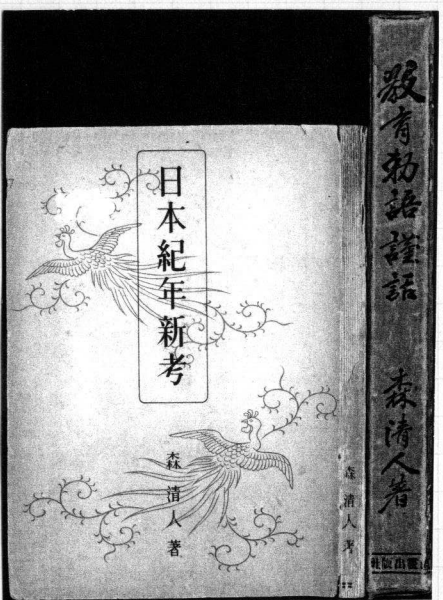 日本紀年新考
森清人著
森清人著
教育勅語謹話
森清人著